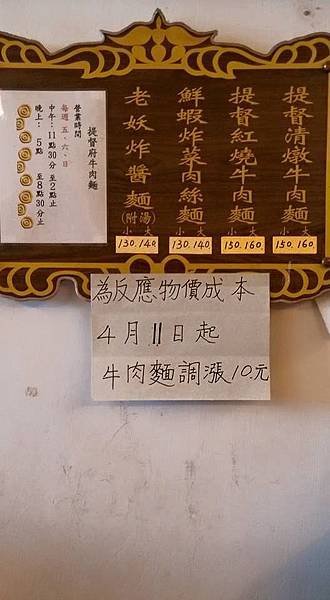 提督清燉牛肉麵
小 大
150.160
提督紅燒牛肉麵
小 大
150.160
鮮蝦炸菜肉絲麵
小 大
130.140
老妖炸醬麵(附湯)
小 大
130.140
提督府牛肉麵
營業時間
每週五、六、日
中午：11點30分至2點止
晚上：5點至8點30分止
為反應物價成本
4月11日起
牛肉麵調漲10元